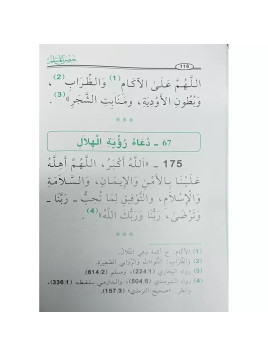 حصن المسلم
116
اللَّهُمَّ عَلَى الآكَامِ (1) وَالظِّرَابِ (2)،
وَبُطُونِ الأَوْدِيَةِ، وَمَنَابِتِ الشَّجَرِ» (3).
***
67 - دُعَاءُ رُؤْيَةِ الْهِلَالِ
175 - «اَللهُ أَكْبَرُ، اللَّهُمَّ أَهِلَّهُ
عَلَيْنَا بِالأَمْنِ وَالإِيمَانِ، وَالسَّلَامَةِ
وَالإِسْلَامِ، وَالتَّوْفِيقِ لِمَا تُحِبُّ - رَبَّنَا -
وَتَرْضَى، رَبُّنَا وَرَبُّكَ اللهُ» (4).
***
(1) الآكام: ج أكمة وهي التلال.
(2) والظراب: النتوءات والروابي الصغيرة.
(3) رواه البخاري (224/1)، ومسلم (614/2).
(4) رواه الترمذي (504/5)، والدارمي بلفظه (336/1)
وانظر «صحيح الترمذي» (157/3).